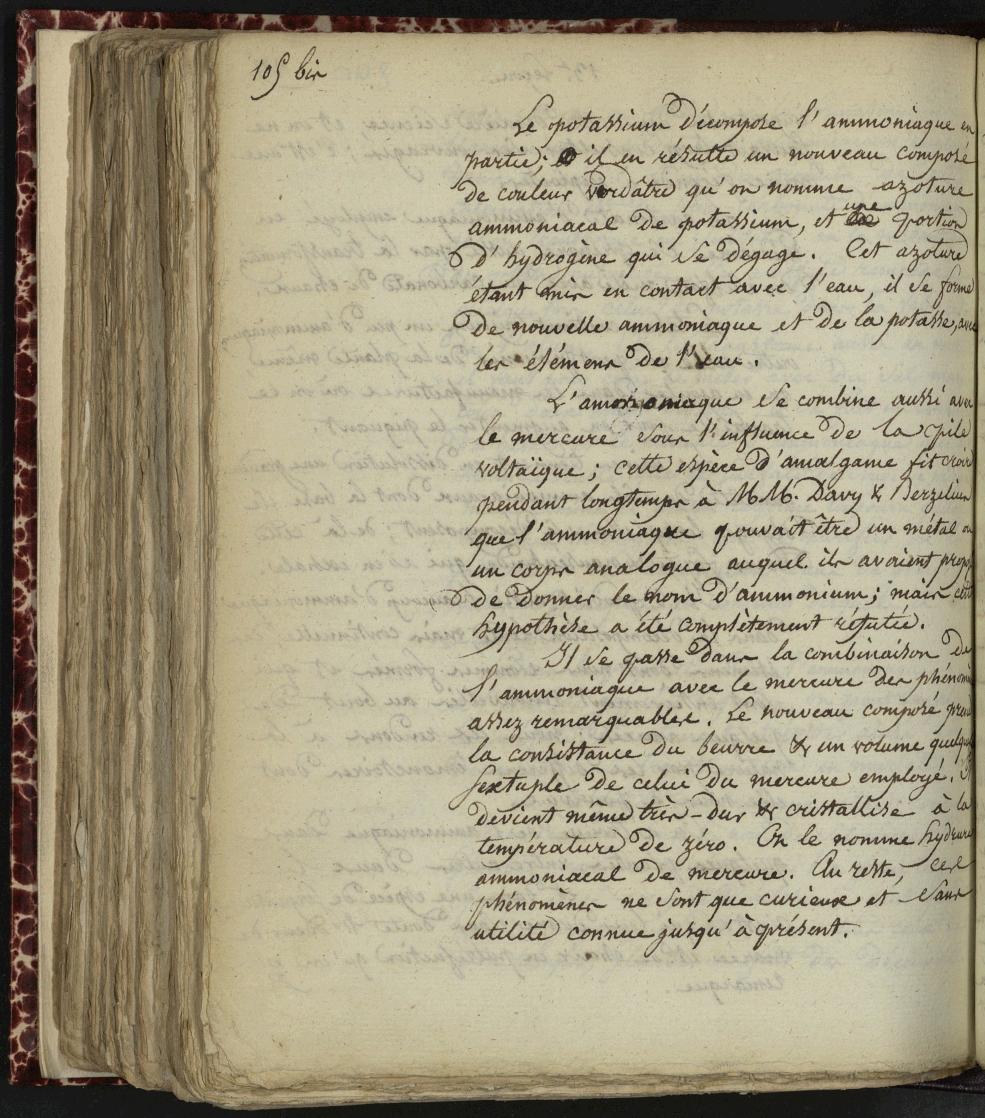 105 bis
Le potassium décompose l'ammoniaque en
partie; et il en résulte un nouveau composé
de couleur verdâtre qu'on nomme azoture
ammoniacal de potassium, et une portion
d'hydrogène qui se dégage. Cet azoture
étant mis en contact avec l'eau, il se forme
de nouvelle ammoniaque et de la potasse, avec
les élémens de l'eau.
L'ammoniaque se combine aussi avec
le mercure sous l'influence de la pile
voltaïque; cette espèce d'amalgame fit croire
pendant longtemps à MM. Davy & Berzelius
que l'ammoniaque pouvait être un métal ou
un corps analogue auquel ils avaient propo
de donner le nom d'ammonium; mais cette
hypothèse a été complètement réfutée.
Il se passe dans la combinaison de
l'ammoniaque avec le mercure des phénomè
assez remarquables. Le nouveau composé prend
la consistance du beurre & un volume quelque
sextuple de celui du mercure employé. Il
devient même très-dur & cristallise à la
température de zéro. On le nomme hydrure
ammoniacal de mercure. Au reste, ces
phénomènes ne sont que curieux et sans
utilité connue jusqu'à présent.